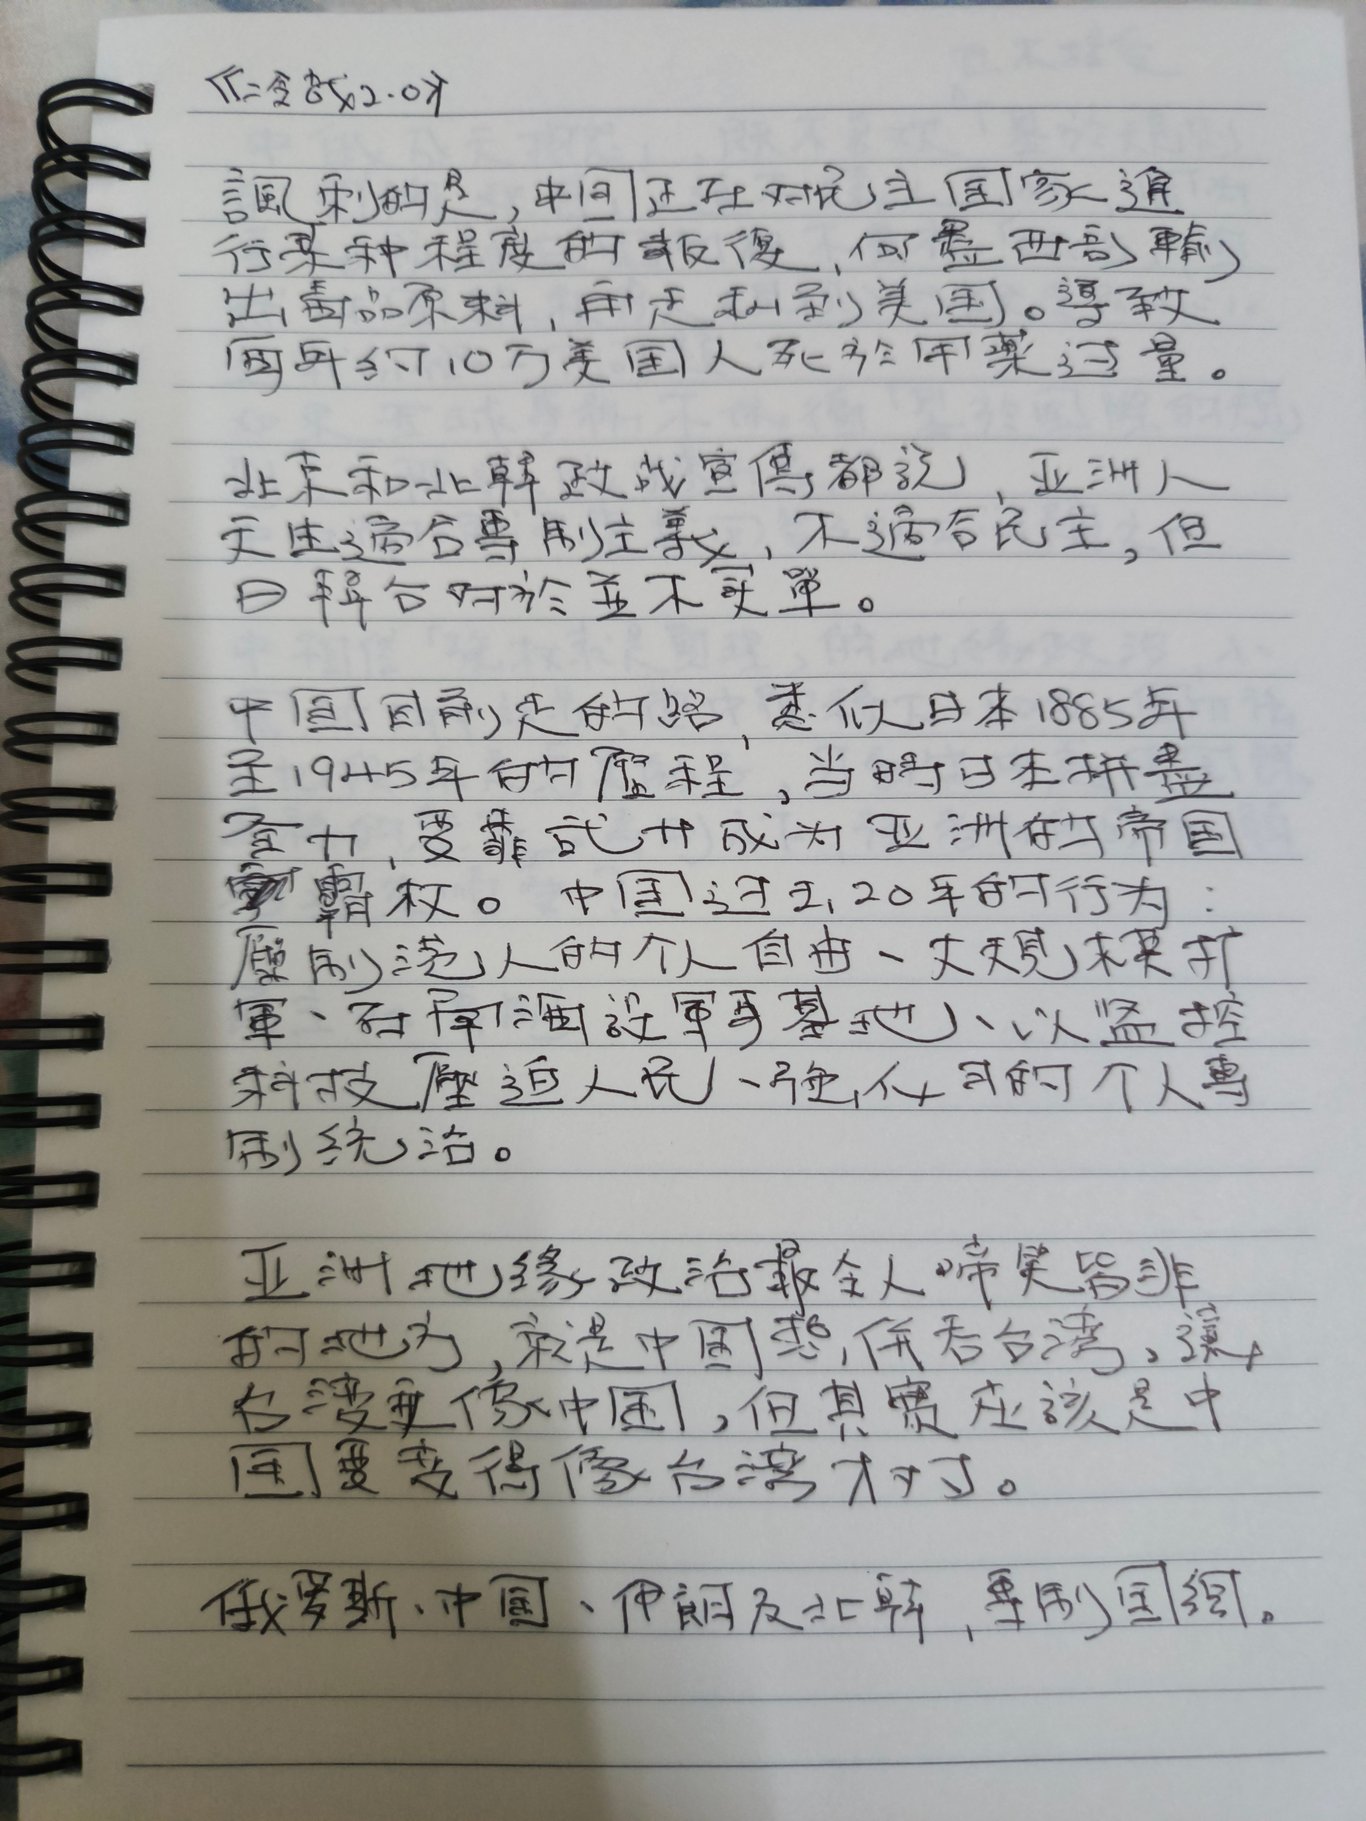 《冷戰2.0》
諷刺的是，中国正在对民主国家進
行某种程度的報復，向墨西哥輸
出毒品原料，再走私到美国。導致
每年約10万美国人死於用藥过量。
北京和北韓政戰宣傳都説，亚洲人
天生適合專制主義，不適合民主，但
日韓台对於並不买單。
中国目前走的路，类似日本1885年
至1945年的歷程，当時日本拼盡
全力，要靠武力成为亚洲的帝国
霸权。中国过去20年的行为：
壓制港人的个人自由、大規模扩
軍、在南海設軍事基地、以监控
科技壓迫人民、強化习的个人專
制統治。
亚洲地缘政治最令人啼笑皆非
的地方，就是中国想併吞台湾，讓
台湾更像中国，但其實应該是中
国要变得像台湾才对。
俄罗斯、中国、伊朗及北韓，專制国網。